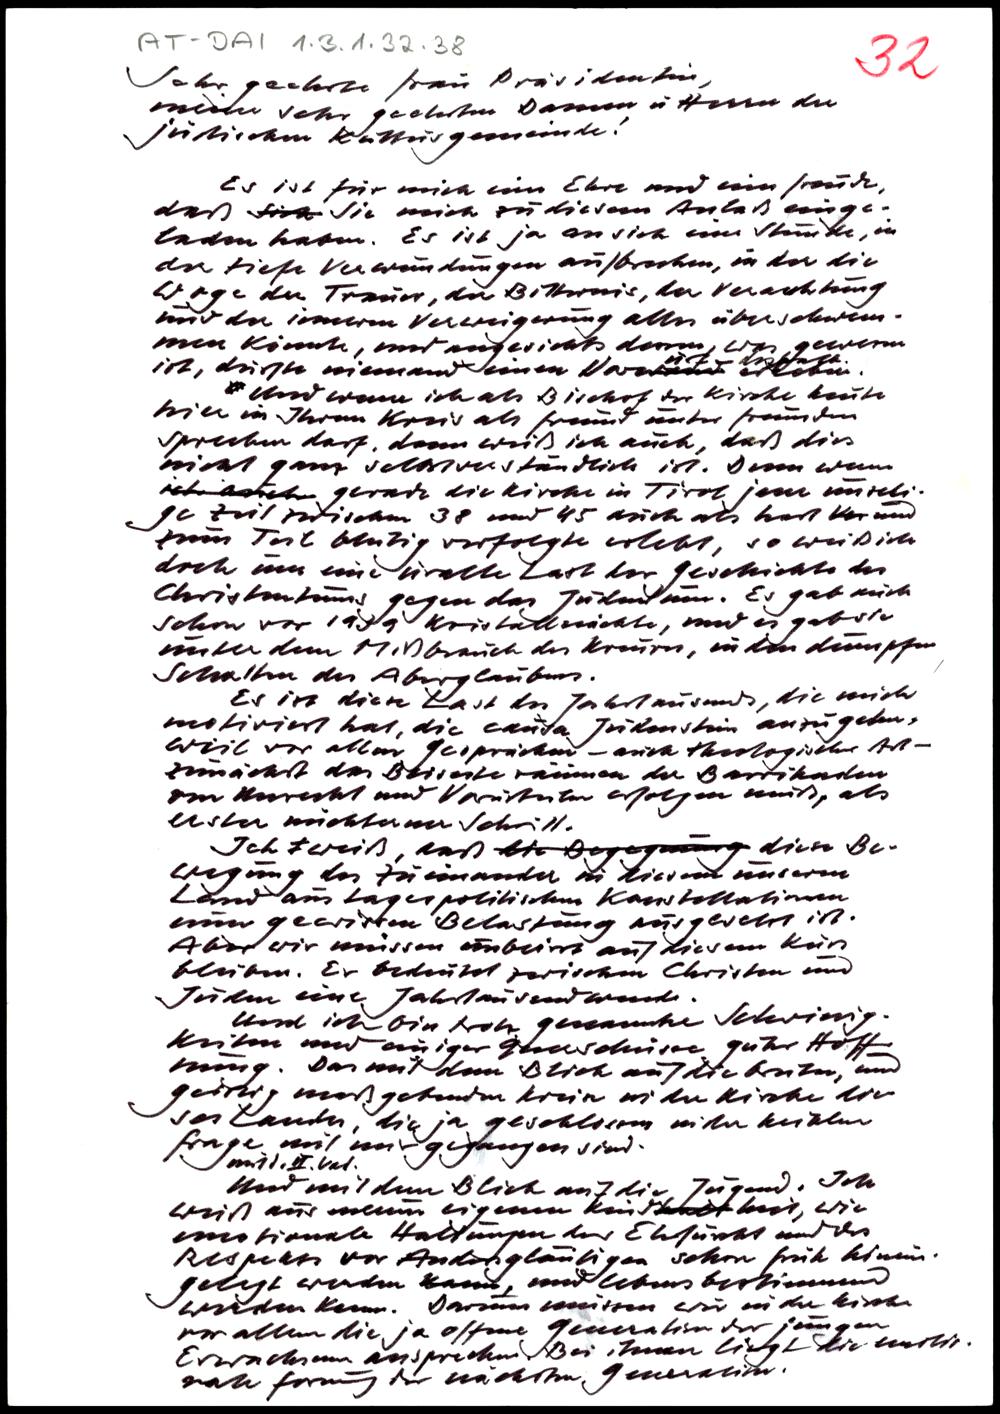 AT-DAI 1.3.1.32.38
32
Sehr geehrte Frau Präsidentin,
meine sehr geehrten Damen u Herrn der
jüdischen Kultusgemeinde!
Es ist für mich eine Ehre und eine Freude,
daß Sie mich zu diesem Anlaß einge-
laden haben. Es ist ja an sich eine Stunde, in
der tiefe Verwundungen aufbrechen, in der die
Woge der Trauer, der Bitternis, der Verachtung
und der inneren Verweigerung alles überschwem-
men könnte, und angesichts dessen, was gewesen
ist, dürfte niemand einen Vorwurf
Und wenn ich als Bischof der Kirche heute
hier in Ihrem Kreis als Freund unter Freunden
sprechen darf, dann weiß ich auch, daß dies
nicht ganz selbstverständlich ist. Denn wenn
gerade die Kirche in Tirol jene unseli-
ge Zeit zwischen 38 und 45 auch als hart und
zum Teil blutig verfolgte erlebt, so weiß ich
doch um eine uralte Last der Geschichte des
Christentums gegen das Judentum. Es gab auch
schon vor 1939 Kristallnächte, und es gab sie
unter dem Mißbrauch des Kreuzes, in den dumpfen
Schatten des Aberglaubens.
Es ist diese Last des Jahrtausends, die mich
motiviert hat, die causa Judenstein anzugehen,
weil vor allen Gesprächen – auch theologischer Art –
zunächst das Beiseiteräumen der Barrikaden
von Unrecht und Vorurteilen erfolgen muß, als
erster nüchterner Schritt.
Ich weiß, daß die Begegnung diese Be-
wegung des Zueinander in diesem unserem
Land aus tagespolitischen Konstellationen
einer gewissen Belastung ausgesetzt ist.
Aber wir müssen unbeirrt auf diesem Kurs
bleiben. Er bedeutet zwischen Christen und
Juden eine Jahrtausendwende.
Und ich bin trotz genannter Schwierig-
keiten und einiger Querschüsse guter Hoff-
nung. Das mit dem Blick auf die breiten, und
geistig maßgebenden Kreise in der Kirche die-
ses Landes, die ja geschlossen in der heiklen
Frage mit mir gegangen sind.
mitt. II. Vat.
Und mit dem Blick auf die Jugend. Ich
weiß aus meiner eigenen Kindheit, wie
emotionale Haltungen der Ehrfurcht und des
Respekts vor Andersgläubigen schon früh hinein-
gelegt werden kann, und lebensbestimmend
werden kann. Darum müssen wir in der Kirche
vor allem die ja offene Generation der jungen
Erwachsenen ansprechen. Bei ihnen liegt die emotio-
nale Formung der nächsten Generation.